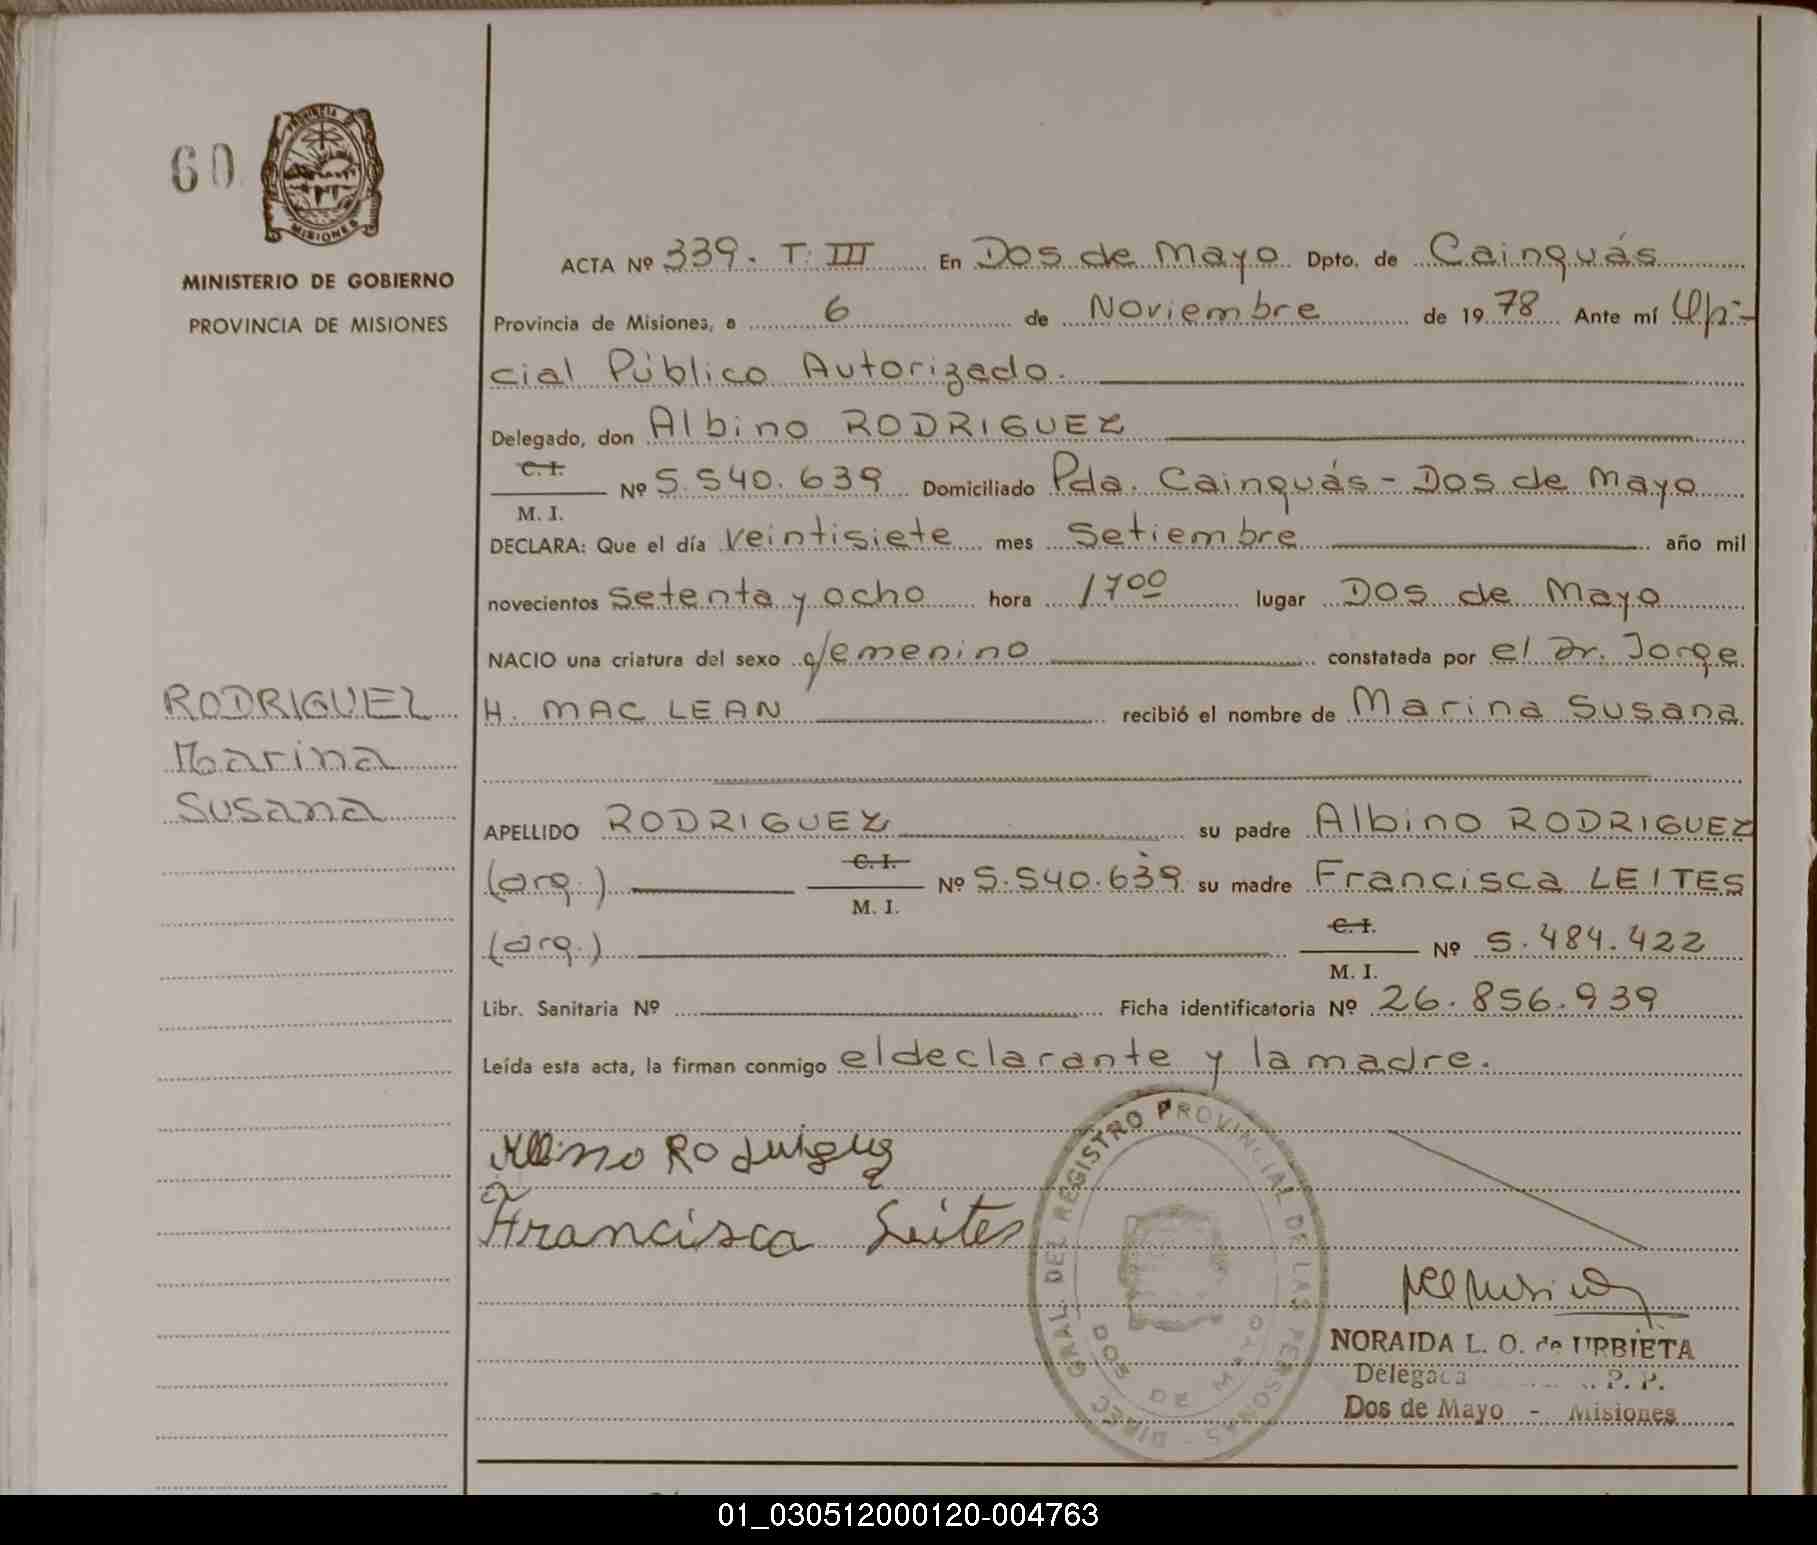 60
PROVINCIA DE
MISIONES
MINISTERIO DE GOBIERNO
PROVINCIA DE MISIONES
RODRIGUEZ
Marina
Susana
ACTA Nº 339. T. III En Dos de Mayo Dpto. de Cainguás
Provincia de Misiones, a 6 de Noviembre de 19 78 Ante mí Ofi-
cial Público Autorizado.
Delegado, don Albino RODRIGUEZ
C. I.
M. I. Nº 5.540.639 Domiciliado Pda. Cainguás - Dos de Mayo
DECLARA: Que el día veintisiete mes Setiembre año mil
novecientos setenta y ocho hora 17 00 lugar Dos de Mayo
NACIO una criatura del sexo femenino constatada por el Dr. Jorge
H. MAC LEAN recibió el nombre de Marina Susana
APELLIDO RODRIGUEZ su padre Albino RODRIGUEZ
(arg.) C. I. M. I. Nº 5.540.639 su madre Francisca LEITES
(arg.) C. I. M. I. Nº 5.484.422
Libr. Sanitaria Nº Ficha identificatoria Nº 26.856.939
Leída esta acta, la firman conmigo el declarante y la madre.
Albino Rodriguez
Francisca Leites
DIREC. GRAL. DEL REGISTRO PROVINCIAL DE LAS PERSONAS -
DOS DE MAYO
NORAIDA L. O. de URBIETA
Delegada P. P.
Dos de Mayo - Misiones
01_030512000120-004763